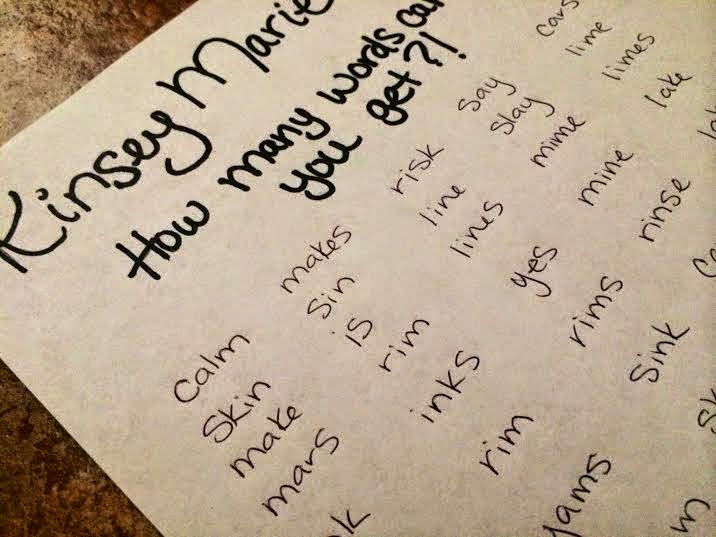 Kinsey Marie
How many words
you get?!
Calm
Skin
make
mars
makes
sin
is
rim
inks
rim
yams
risk
line
lines
yes
rims
sink
say
slay
mime
mine
rinse
cars
lime
limes
lake